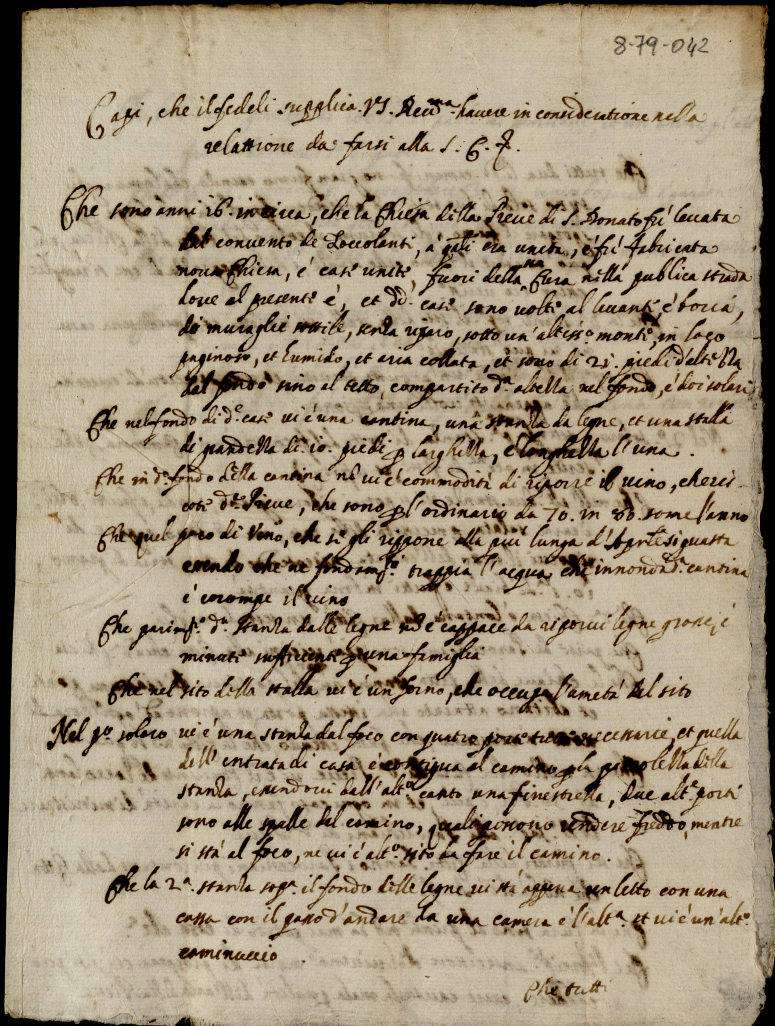 8-79-042
Capi, che il fedeli supplica V.S. Reu.ma hauere in consideratione nella
relattione da farsi alla S. C.
Che sono anni 26. in circa, che la Chiesa della Pieue di S. Donato fù leuata
dal conuento de Zoccolanti, à quali era unita, è fù fabricata
noua Chiesa, è case unite, fuori della Cura nella publica strada
doue al presente è, et d.e case sono uolte al leuante è borrá,
di muraglie sottile, senza riparo, sotto un'altiss.o monte, in loco
paginoso, et humido, et aria collata, et sono di 21. piedi d'altezza
dal fondo sino al tetto, compartito d.a altezza nel fondo, è doi solari
Che nel fondo di d.e case ui è una cantina, una stanza da legne, et una stalla
di grandezza di 10. piedi p larghezza, è longhezza l'una.
Che in d.o fondo della cantina nō ui è commodità di riporre il uino, che res-
cote d.a Pieue, che sono p l'ordinario da 70. in 80. some l'anno
Che quel poco di Vino, che se gli rippone alla più lunga d'Aprile si guasta
essendo che ne fondam.ti trappia l'acqua che innonda d.a cantina
è corompe il uino
Che parim.te d.a stanza dalle legne nō è cappace da riporui legne grosse, è
minute sufficiente p una famiglia
Che nel sito della stalla ui è un forno, che occupa l'ametà del sito
Nel p.o solaro ui è una stanza dal foco con quatro porte necessarie, et quella
dell'entrata di casa è contigua al camino p la picciolezza della
stanza, essendoui dall'alt.o canto una finestrella, due alt.e porte
sono alle spalle del camino, quali possono rendere freddo, mentre
si stá al foco, ne ui è alt.o sito da fare il camino.
Che la 2.a stanza sop.a il fondo delle legne ui stá appena un letto con una
cassa con il passo d'andare da una camera è l'alt.a et ui è un'alt.o
caminuccio
Che tutti